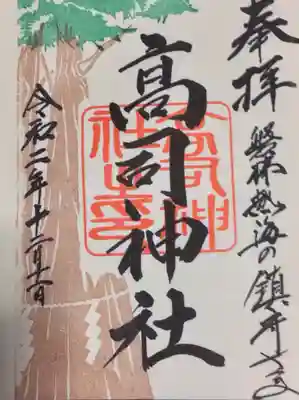 奉拝
磐梯熱海の鎮守さま
高司神社
令和二年十二月十二日